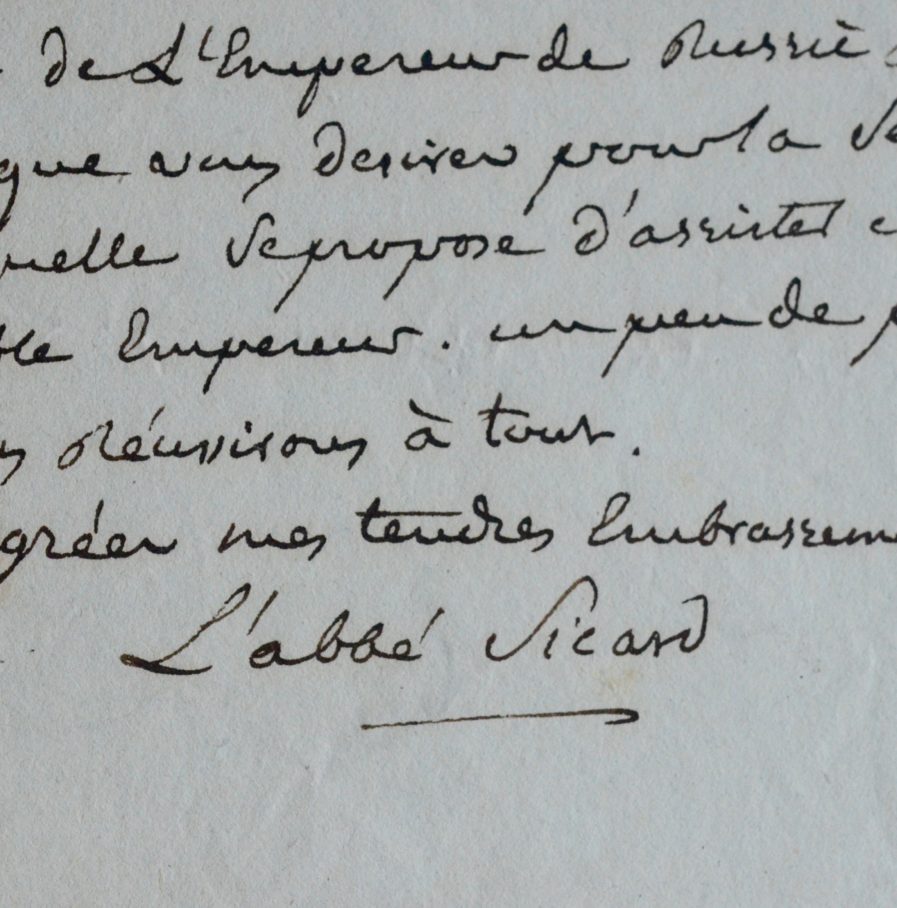 de L'Empereur de Russie
que vous desirez pour la
quelle se propose d'assister
Empereur. un peu de
réussirons à tout.
agréer mes tendres Embrassem
L'abbé Sicard